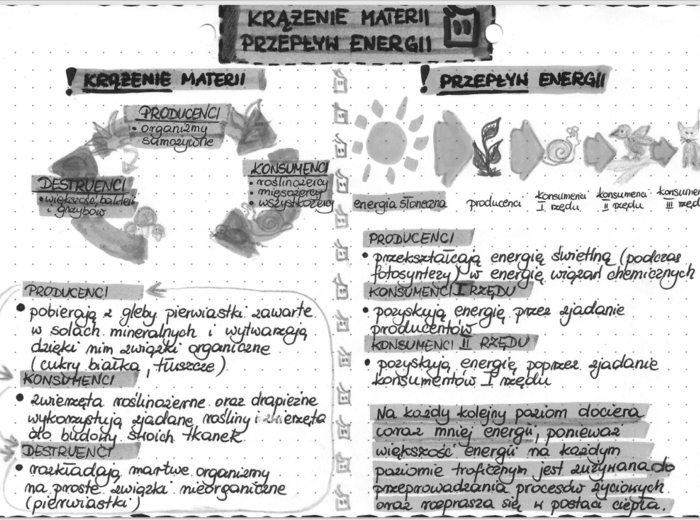 KRĄŻENIE MATERII
PRZEPŁYW ENERGII
! KRĄŻENIE MATERII
PRODUCENCI
• organizmy
samożywne
KONSUMENCI
• roślinożercy
• mięsożercy
• wszystkożercy
DESTRUENCI
• większość bakterii
i grzybów
PRODUCENCI
• pobierają z gleby pierwiastki zawarte
w solach mineralnych i wytwarzają
dzięki nim związki organiczne
(cukry białka, tłuszcze)
KONSUMENCI
• zwierzęta roślinożerne oraz drapieżne
wykorzystują zjadane rośliny i zwierzęta
do budowy swoich tkanek
DESTRUENCI
• rozkładają martwe organizmy
na proste związki nieorganiczne
(pierwiastki)
! PRZEPŁYW ENERGII
energia słoneczna
producenci
konsumenci
I rzędu
konsumenci
II rzędu
konsumen
III rzęd
PRODUCENCI
• przekształcają energię świetlną (podczas
fotosyntezy) w energię wiązań chemicznych
KONSUMENCI I RZĘDU
• pozyskują energię przez zjadanie
producentów
KONSUMENCI II RZĘDU
• pozyskują energię poprzez zjadanie
konsumentów I rzędu
Na każdy kolejny poziom dociera
coraz mniej energii, ponieważ
większość energii na każdym
poziomie troficznym jest zużywana do
przeprowadzania procesów życiowych
oraz rozprasza się w postaci ciepła.